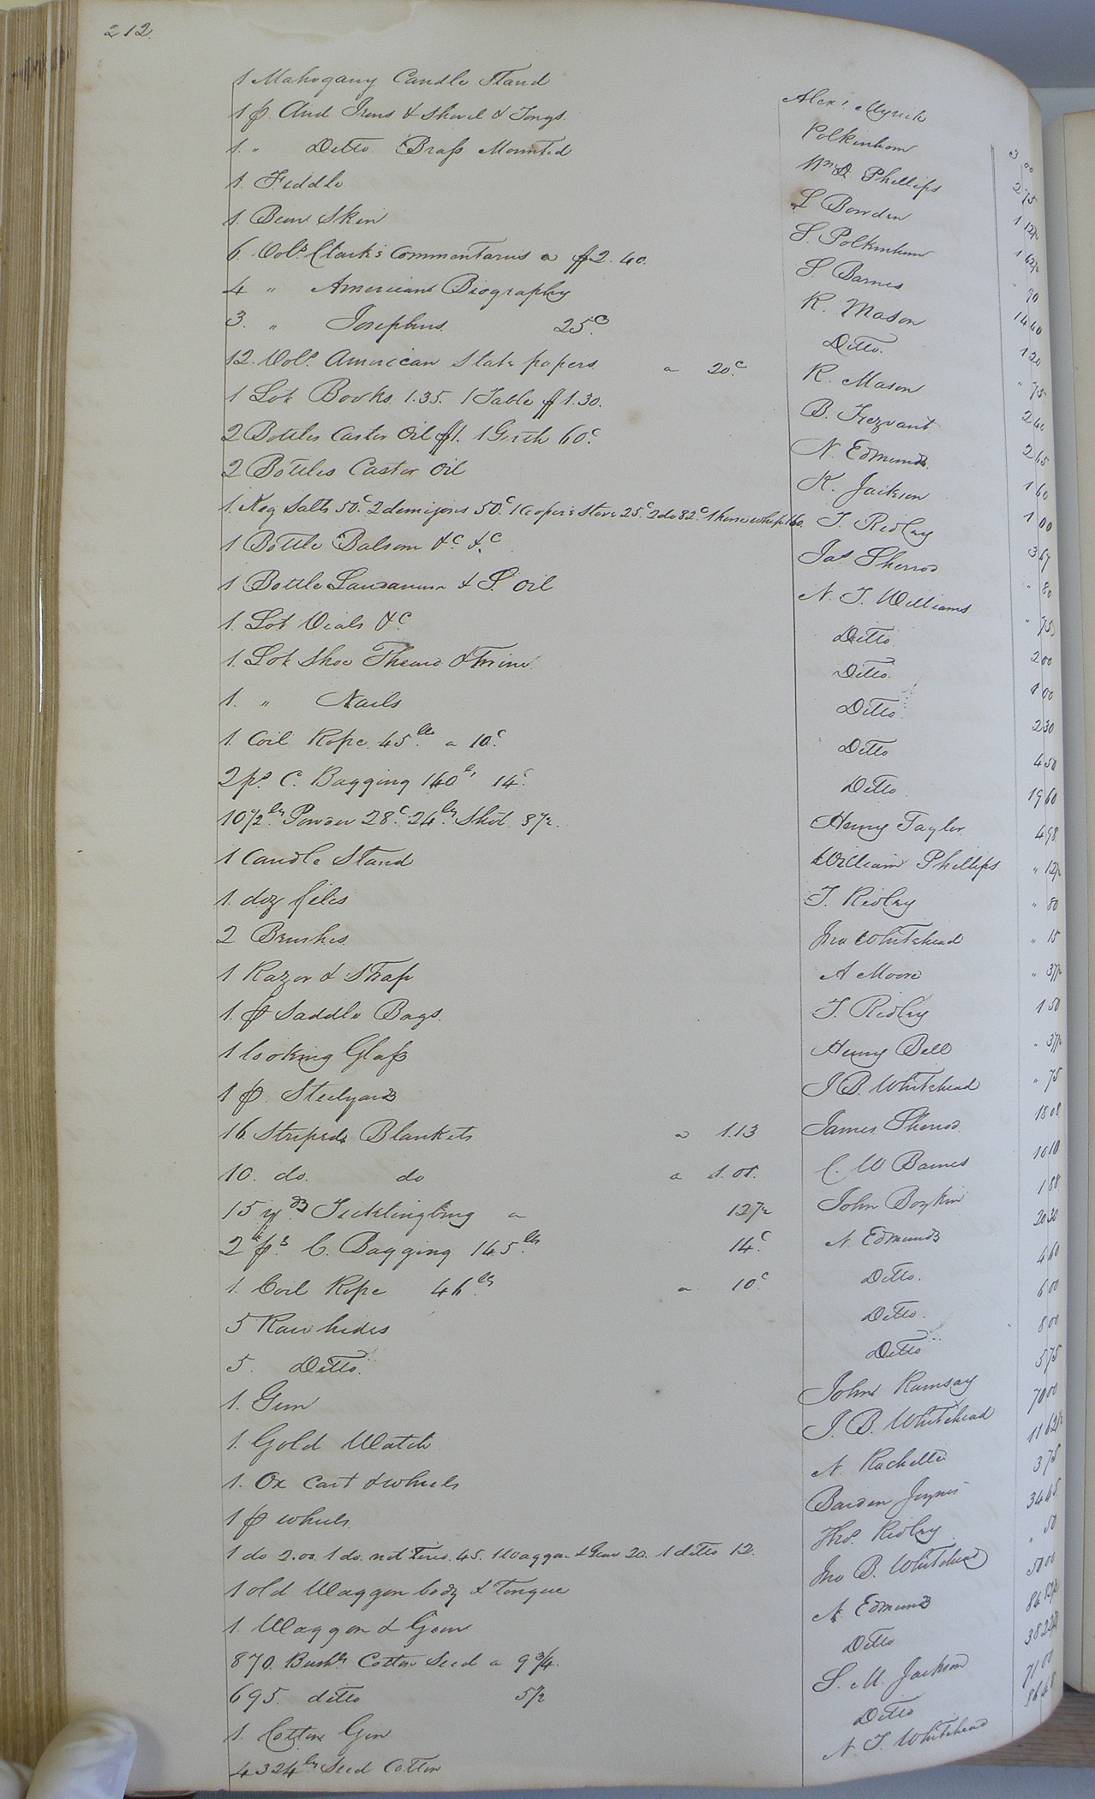 212.
1 Mahogany Candle Stand Alexr Myrick 3 00
1 p. And Irons & Shovel & Tongs. Polkinhorn 2 75
1. " Ditto Brass Mounted Wm D Phillips 1 12½
1. Fiddle L Bowden 1 62½
1. Bear Skin S. Polkinhorn " 90
6. Vols Clark's Commentaries a $2.40. S. Barnes 14 40
4 " Americans Biography R. Mason 1 20
3. " Josephus. 25c Ditto. " 75
12. Vols American State papers a 20c R. Mason 2 40
1 Lot Books 1.35. 1 Table $1.30. B. Trezvant 2 65
2 Bottles Castor Oil $1. 1 Girth 60c N. Edmunds 1 60
2 Bottles Castor Oil K. Jackson 1 00
1. Keg Salts 50c 2 demijons 50c 1 Coopers Stove 25c 2 do 82c 1 horse whip 1.60. T. Ridley 3 67
1 Bottle Balsom &c &c Jas Sherrod " 80
1 Bottle Laudanum & S. Oil N. T. Williams " 75
1. Lot Vials &c Ditto 2 00
1. Lot Shoe Thread & Twine Ditto 1 00
1. " Nails Ditto 2 30
1. Coil Rope. 45 lbs a 10c Ditto 4 50
2 ps C. Bagging 140 lbs 14c Ditto 19 60
10½ lbs Powder 28c 24 lbs Shot 8½. Henry Taylor 4 98
1 Candle Stand William Phillips " 12½
1. doz files T. Ridley " 80
2 Brushes Jno Whitehead " 15
1 Razor & Strap A Moore " 37½
1. p Saddle Bags. T. Ridley 1 50
1 looking Glass Henry Bell " 37½
1 p. Steelyards J B. Whitehead " 75
16 Striped Blankets a 1.13 James Sherrod. 18 08
10. do. do a 1.01. C. W Barnes 10 10
15 yds Ticklingburg a 12½ John Boykin 1 88
2 ps C. Bagging 145 lbs 14c N. Edmunds 20 30
1. Coil Rope 46 lbs a 10c Ditto. 4 60
5 Raw hides Ditto. 6 00
5. Ditto. Ditto 8 00
1. Gun John Ramsay 5 75
1. Gold Watch J. B. Whitehead 70 00
1. Ox Cart & wheels N. Rochelle 11 62½
1 p wheels Barden Joyner 3 75
1 do 2.00. 1 do. not Tired. 45. 1 Waggon & Gear 20. 1 ditto 12. Thos. Ridley 34 45
1 old Waggon body & Tongue Jno B. Whitehead " 50
1. Waggon & Gear N. Edmunds 50 00
870. Bushs Cotton Seed a 9¾. Ditto 84 82½
695. ditto 5½ S. M. Jackson 38 22½
1. Cotton Gin Ditto 71 00
4324 lbs Seed Cotton N. T. Whitehead 86 48